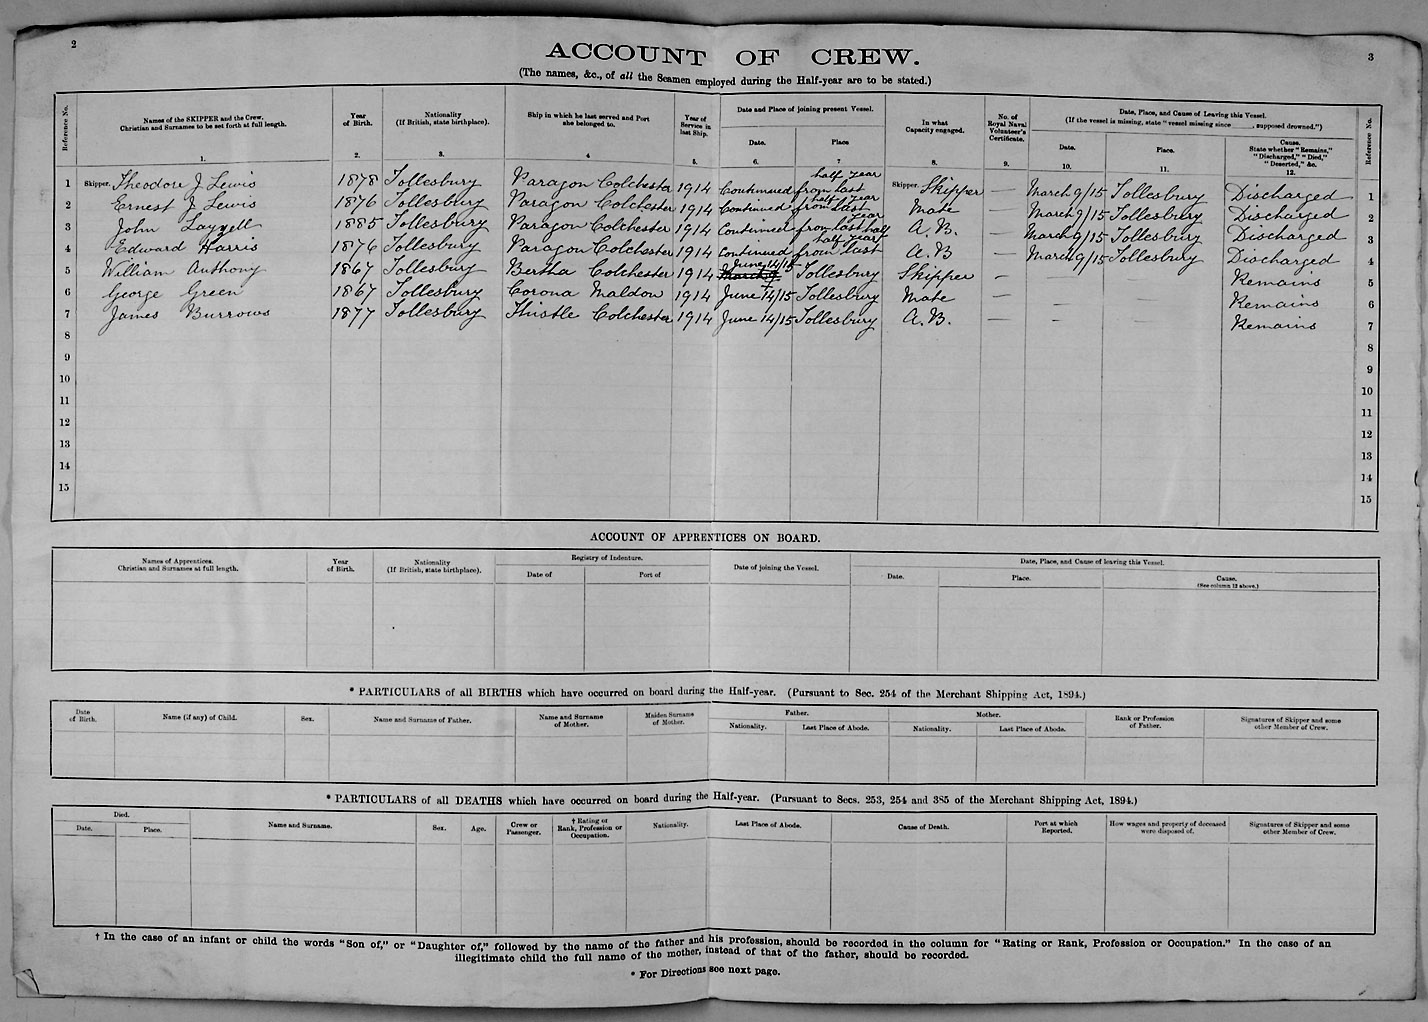 2
ACCOUNT OF CREW.
3
(The names, &c., of all the Seamen employed during the Half-year are to be stated.)
Reference No.
Names of the SKIPPER and the Crew.
Christian and Surnames to be set forth at full length.
1.
Year of Birth.
2.
Nationality
(If British, state birthplace).
3.
Ship in which he last served and Port she belonged to.
4
Year of Service in last Ship.
5.
Date and Place of joining present Vessel.
Date.
6.
Place
7
In what Capacity engaged.
8.
No. of Royal Naval Volunteer's Certificate.
9.
Date, Place, and Cause of Leaving this Vessel.
(If the vessel is missing, state "vessel missing since ____, supposed drowned.")
Date.
10.
Place.
11.
Cause.
State whether "Remains," "Discharged," "Died," "Deserted," &c.
12.
Reference No.
1 Skipper. Theodore J Lewis 1878 Tollesbury Paragon Colchester 1914 Continued from last half year Skipper. Skipper — March 9/15 Tollesbury Discharged 1
2 Ernest J Lewis 1876 Tollesbury Paragon Colchester 1914 Continued from last half year Mate — March 9/15 Tollesbury Discharged 2
3 John 1885 Tollesbury Paragon Colchester 1914 Continued from last half year A.B. — March 9/15 Tollesbury Discharged 3
4 Edward Harris 1876 Tollesbury Paragon Colchester 1914 Continued from last half year A.B — March 9/15 Tollesbury Discharged 4
5 William Anthony 1867 Tollesbury Bertha Colchester 1914 March 9 June 14/15 Tollesbury Skipper — Remains 5
6 George Green 1867 Tollesbury Corona Maldon 1914 June 14/15 Tollesbury Mate — — — Remains 6
7 James Burrows 1877 Tollesbury Thistle Colchester 1914 June 14/15 Tollesbury A.B. — — — Remains 7
8 8
9 9
10 10
11 11
12 12
13 13
14 14
15 15
ACCOUNT OF APPRENTICES ON BOARD.
Names of Apprentices.
Christian and Surnames at full length.
Year of Birth.
Nationality
(If British, state birthplace).
Registry of Indenture.
Date of
Port of
Date of joining the Vessel.
Date, Place, and Cause of leaving this Vessel.
Date.
Place.
Cause.
(See column 12 above.)
* PARTICULARS of all BIRTHS which have occurred on board during the Half-year. (Pursuant to Sec. 254 of the Merchant Shipping Act, 1894.)
Date of Birth.
Name (if any) of Child.
Sex.
Name and Surname of Father.
Name and Surname of Mother.
Maiden Surname of Mother.
Father.
Nationality.
Last Place of Abode.
Mother.
Nationality.
Last Place of Abode.
Rank or Profession of Father.
Signatures of Skipper and some other Member of Crew.
* PARTICULARS of all DEATHS which have occurred on board during the Half-year. (Pursuant to Secs. 253, 254 and 385 of the Merchant Shipping Act, 1894.)
Died.
Date.
Place.
Name and Surname.
Sex.
Age.
Crew or Passenger.
† Rating or Rank, Profession or Occupation.
Nationality.
Last Place of Abode.
Cause of Death.
Port at which Reported.
How wages and property of deceased were disposed of.
Signatures of Skipper and some other Member of Crew.
† In the case of an infant or child the words "Son of," or "Daughter of," followed by the name of the father and his profession, should be recorded in the column for "Rating or Rank, Profession or Occupation." In the case of an
illegitimate child the full name of the mother, instead of that of the father, should be recorded.
* For Directions see next page.